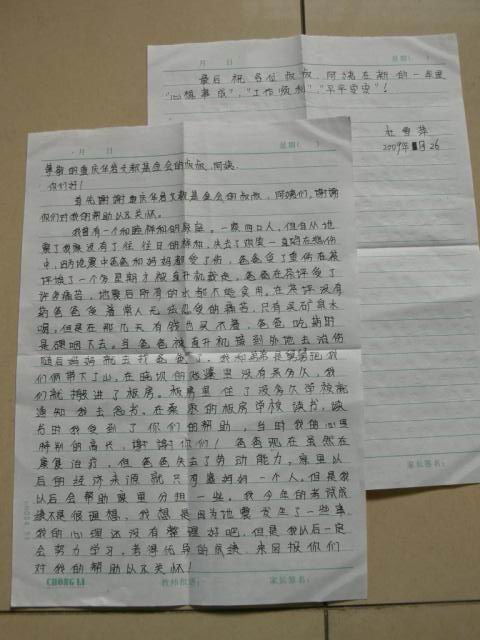 月 日 星期( )
最后祝各位叔叔、阿姨在新的一年里
"心想事成","工作顺利","平平安安"!
2009年 月26
家长签名:
月 日 星期( )
尊敬的重庆华岩文教基金会的叔叔、阿姨:
你们好!
首先谢谢重庆华岩文教基金会的叔叔,阿姨们,谢谢
你们对我的帮助以及关怀。
我曾有一个和睦祥和的家庭。一家四口人,但自从地
震了我家没有了往日的祥和,失去了欢笑一直陷在悲伤
中,因为地震中爸爸和妈妈都受了伤,爸爸受了重伤在茶
坪 了一个多星期才被直升机救走。爸爸在茶坪受了
许多痛苦,地震后所有的水都不能食用。在茶坪没有
药爸爸受着常人无法忍受的痛苦,只有买矿泉水
喝。但是在那几天有钱也买不着,爸爸吃药时
是硬咽下去。当爸爸被直升机接到外地去治伤
随后妈妈就去找爸爸了,我和 是舅舅把我
们俩带下了山,在晓坝的帐篷里没有呆多久,我
们就搬进了板房。板房里住了没多久学校就
通知我去念书。在桑枣的板房学校读书,读
书时我受到了你们的帮助,当时我的心里
特别的高兴,谢谢你们!爸爸现在虽然在
康复治疗,但爸爸失去了劳动能力,家里以
后的经济来源就只有靠妈妈一个人。但是我
以后会帮助家里分担一些。我今年的考试成
绩不是很理想,我想是因为地震发生了一些事
我的心理还没有整理好吧,但是我以后一定
会努力学习,考得优异的成绩,来回报你们
对我的帮助以及关怀!
CHONG LI 教师批语: 家长签名: